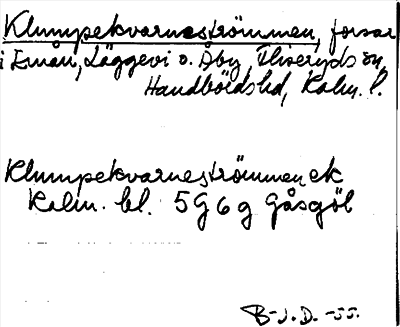 Klumpekvarneströmmen, forsar
i Emån, Läggevi o. Åby, Fliseryds sn,
Handbörds hd, Kalm. l.
Klumpekvarneströmmen ek
Kalm. bl. 5G 6g Gåsgöl
B-J. D. -55.